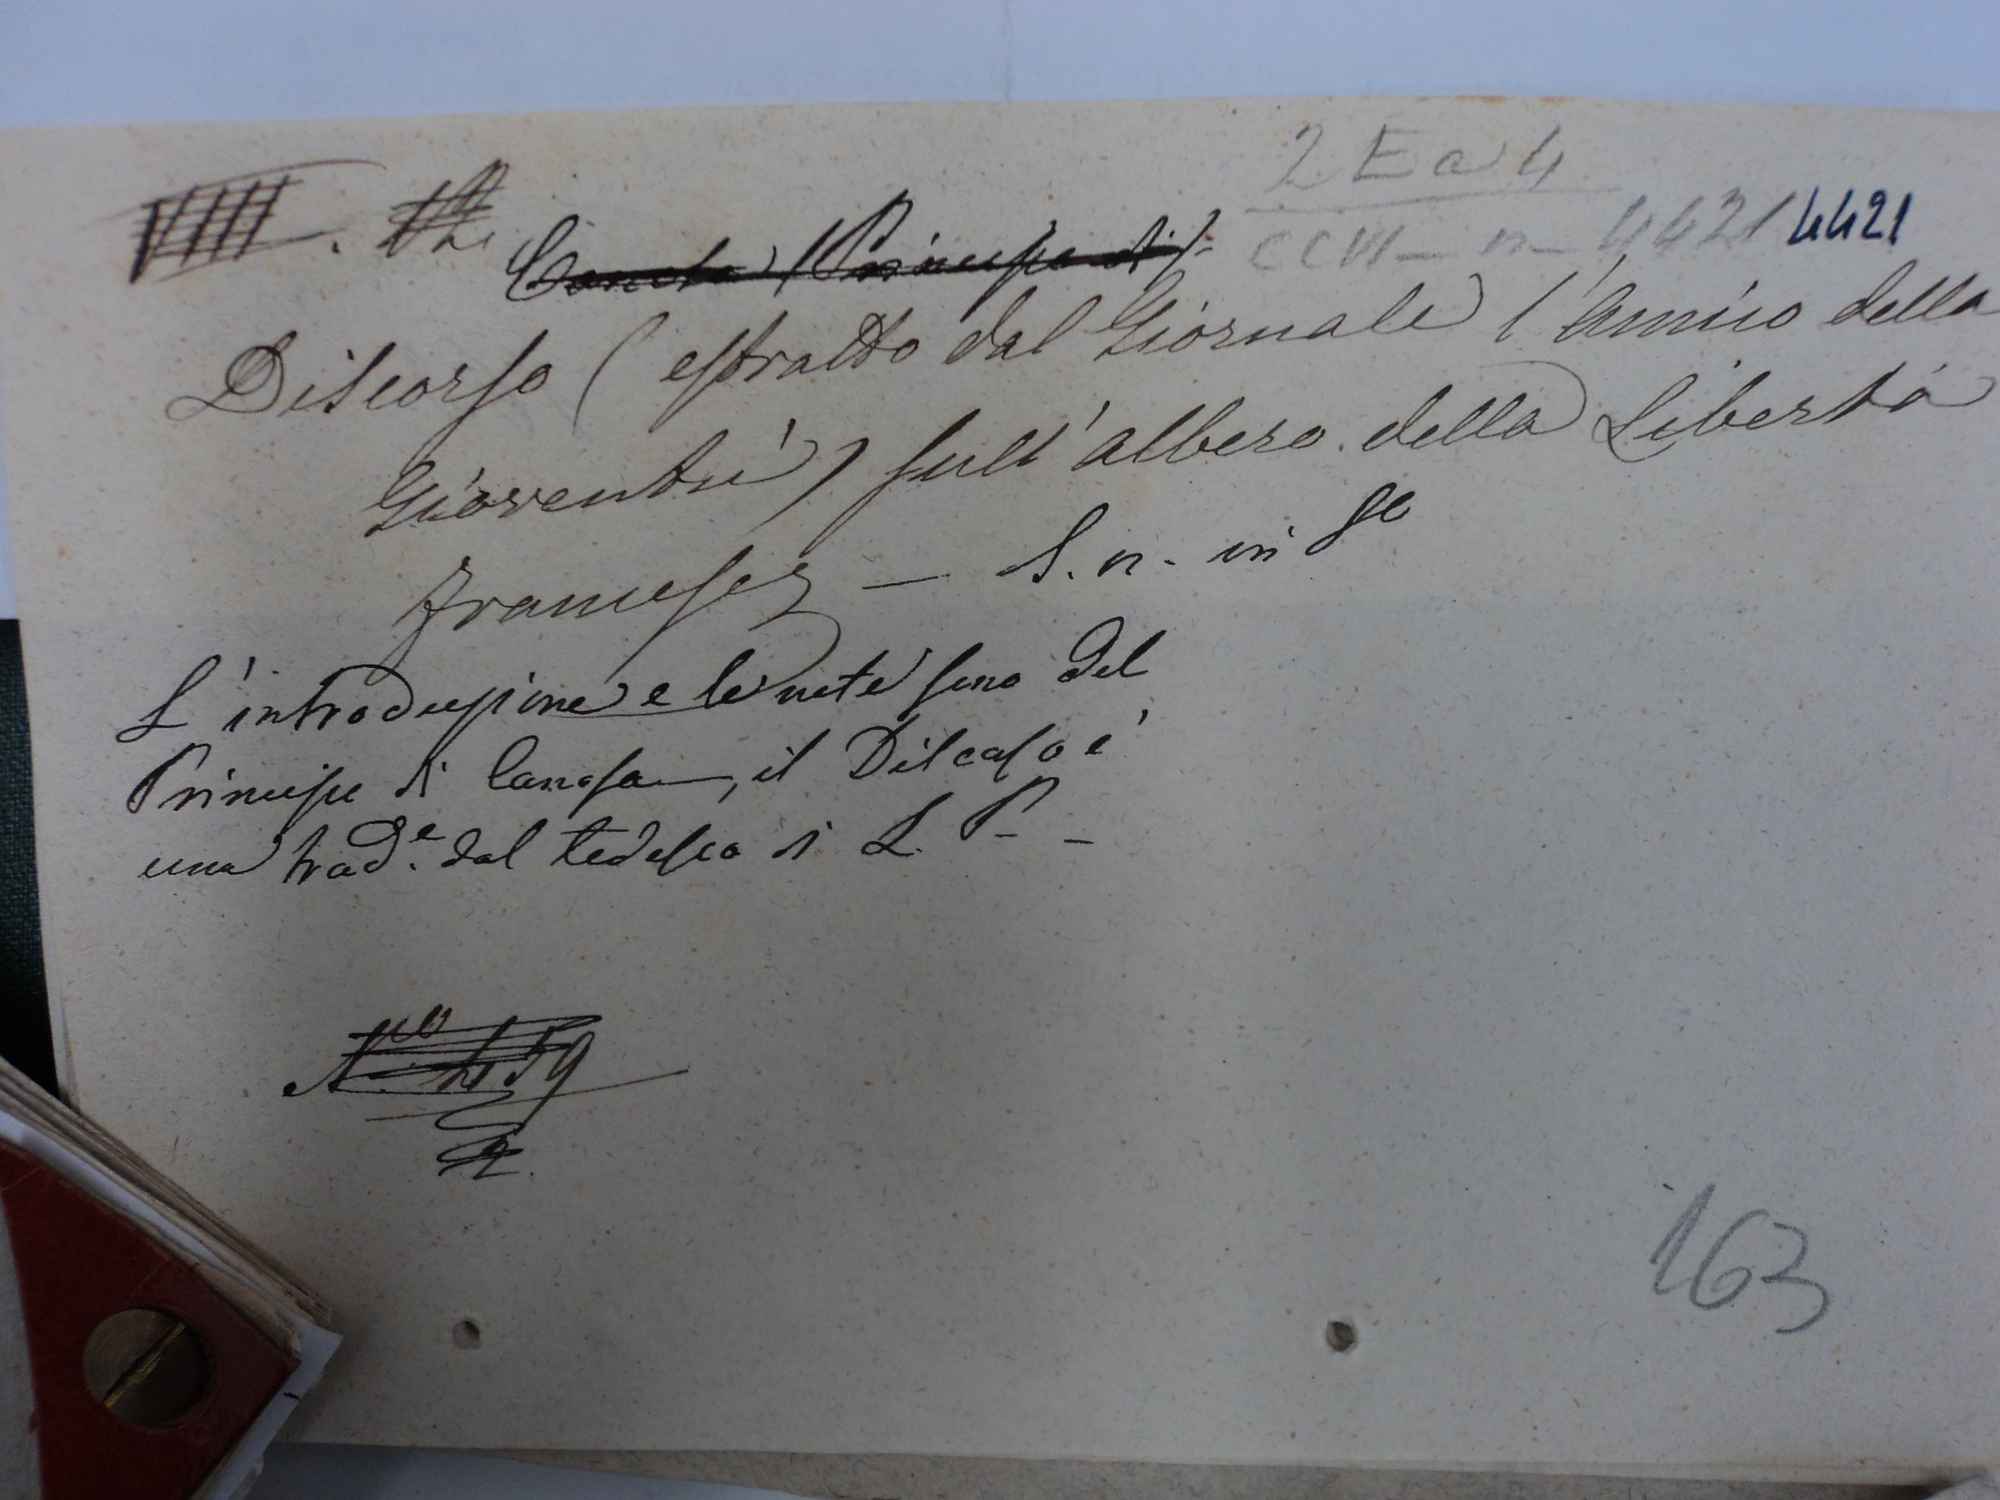 2 E a 4
VIII.
CCVI - n - 4421 4421
Discorso (estratto dal Giornale l'Amico della
Gioventù) sull'albero della Libertà
Francese, - S. n. in 8o
L'introduzione e le note sono del
Principe di Canosa, il Discorso è
una trad.e dal tedesco di L. P. -
163